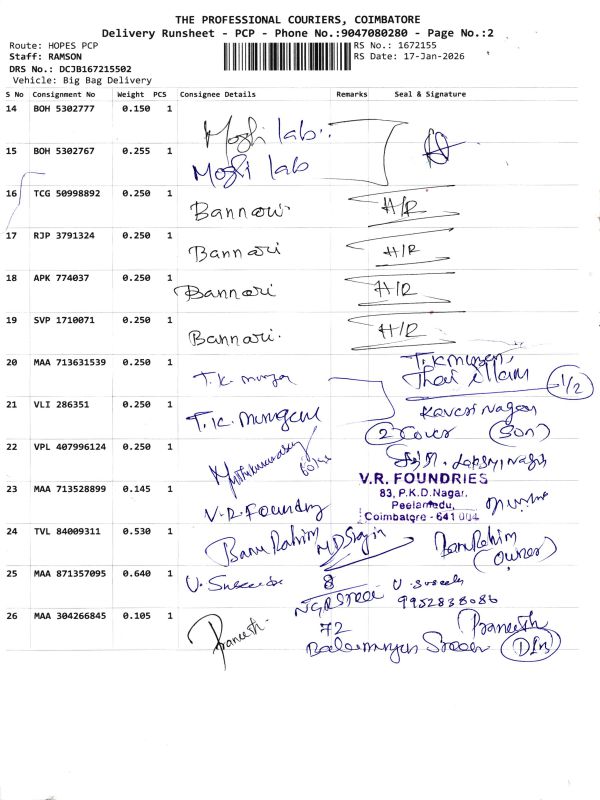 THE PROFESSIONAL COURIERS, COIMBATORE
Delivery Runsheet - PCP - Phone No.:9047080280 - Page No.:2
Route: HOPES PCP
Staff: RAMSON
DRS No.: DCJB167215502
Vehicle: Big Bag Delivery
RS No.: 1672155
RS Date: 17-Jan-2026
S No Consignment No Weight PCS Consignee Details Remarks Seal & Signature
14 BOH 5302777 0.150 1 Mogli lab
15 BOH 5302767 0.255 1 Mogli lab
16 TCG 50998892 0.250 1 Bannari H/R
17 RJP 3791324 0.250 1 Bannari H/R
18 APK 774037 0.250 1 Bannari H/R
19 SVP 1710071 0.250 1 Bannari. H/R
20 MAA 713631539 0.250 1 T.K. T.K
Thai illam 1/2
21 VLI 286351 0.250 1 T.K. Nagar
2 Cover (Son)
22 VPL 407996124 0.250 1
23 MAA 713528899 0.145 1 V.R. Foundry
V.R. FOUNDRIES
83, P.K.D.Nagar,
Peelamedu,
Coimbatore - 641 004
24 TVL 84009311 0.530 1 Banu Rahim Banu Rahim
(owner)
25 MAA 871357095 0.640 1 U. 8 U.
NGR Street 9952838086
26 MAA 304266845 0.105 1 Praneesh. 72 Praneesh
Street